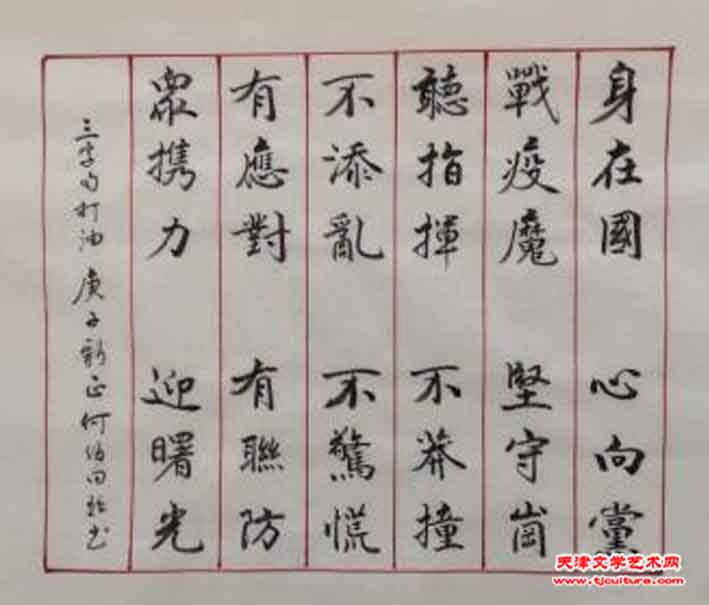 身在國 心向黨
戰疫魔 堅守崗
聽指揮 不莽撞
不添亂 不驚慌
有應對 有聯防
眾携力 迎曙光
三字句打油 庚子新正何伯田 書
天津文学艺术网
www.tjculture.com